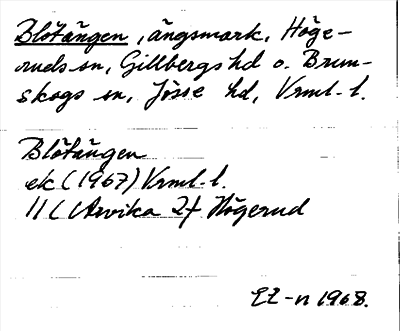 Blötängen, ängsmark, Höge-
ruds sn, Gillbergs hd o. Brun-
skogs sn, Jösse hd, Vrml. l.
Blötängen
ek (1967) Vrml. l.
11C Arvika Högerud
EL-n 1968.